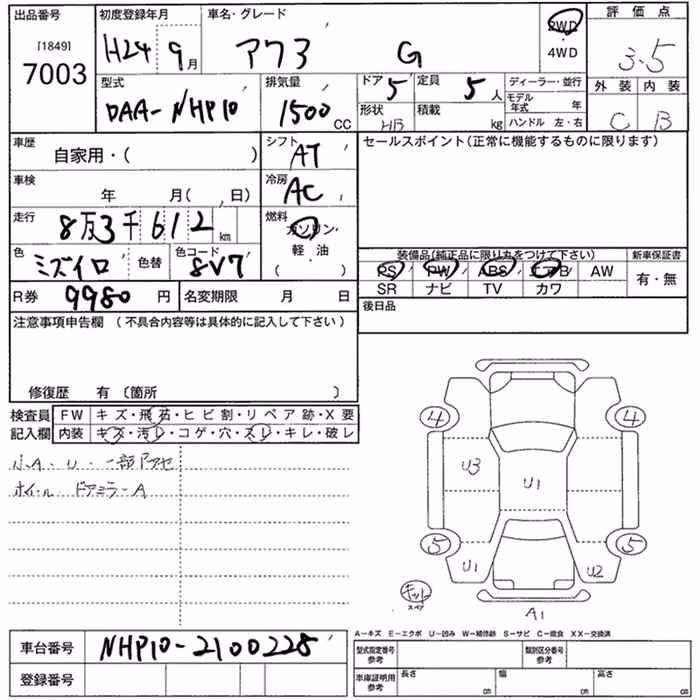 出品番号
［1849］
7003
初度登録年月
H24 9月
車名・グレード
アクア G
2WD
4WD
評価点
3.5
型式
DAA-NHP10
排気量
1500 CC
ドア 5
定員 5人
形状 HB
積載 kg
ディーラー・並行
モデル年式 年
ハンドル 左・右
外装 内装
C B
車歴
自家用・( )
シフト AT
セールスポイント(正常に機能するものに限ります)
車検
年 月( 、日)
冷房 AC
走行
8万3千612 km
燃料
ガソリン
軽・油
( )
色
ミズイロ 色替
色コード 8V7
装備品(純正品に限り丸をつけて下さい)
PS PW ABS エアB AW
SR ナビ TV カワ
新車保証書
有・無
R券 9980円
名変期限 月 日
後日品
注意事項申告欄 (不具合内容等は具体的に記入して下さい)
修復歴 有〔箇所 〕
検査員記入欄
FW キズ・飛石・ヒビ割・リペア跡・X要
内装 キズ・汚レ・コゲ・穴・スレ・キレ・破レ
小A・U・一部アセ
ホイール ドアミラーA
4 4
U3 U1
5 5
U1 U2
キット
スペア
A1
A－キズ E－エクボ U－凹み W－補修跡 S－サビ C－腐食 XX－交換済
車台番号 NHP10-2100228
登録番号
型式指定番号 参考
類別区分番号 参考
車庫証明用 参考
長さ cm 幅 cm 高さ cm